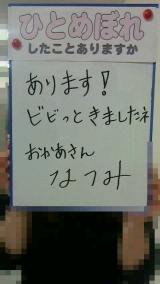 ひとめぼれ
したことありますか
あります!
ビビっときましたネ
おかあさん
なつみ